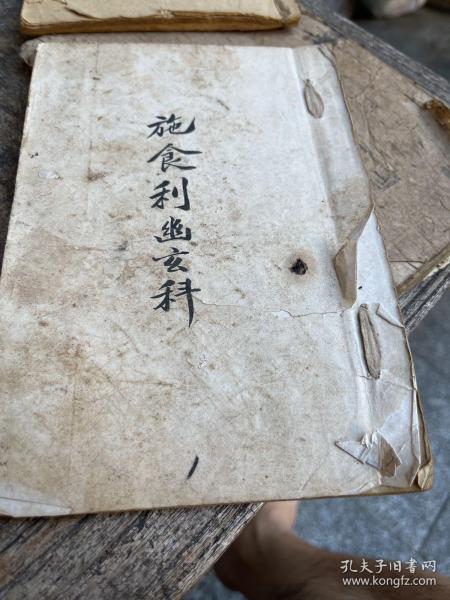 施食利幽玄科
孔夫子旧书网
www.kongfz.com